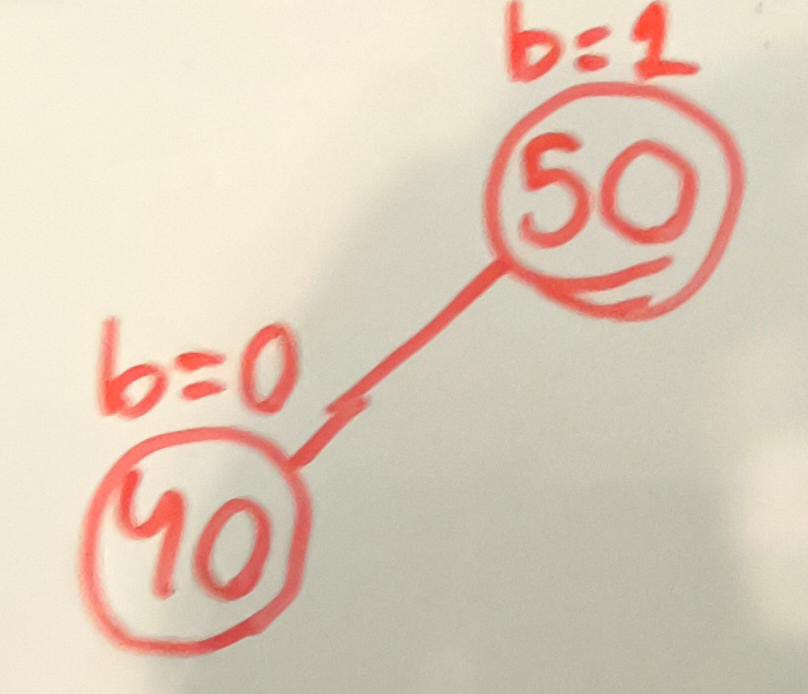 b=1
50
b=0
40